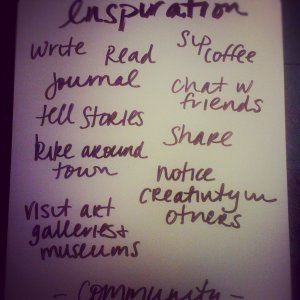 Inspiration
write Read sip coffee
journal
chat w friends
tell stories
share
bike around town
notice creativity in others
visit art galleries & museums
- community -